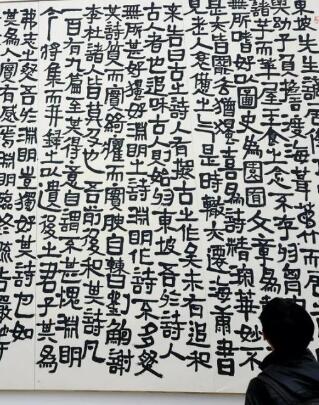 東坡先生
與幼子負擔渡海葺茅竹而居
諸芋而華屋玉食之念不存於胸中
無所嗜好以圖史為園囿文章為鼓
亦皆罷去猶獨喜為詩精深華妙不
見老人衰憊之气是時轍亦遷海康書
來告曰古之詩人有擬古之作矣未有追和
古人者也追咊古人則始於東坡吾於詩人
無所甚好獨好淵明之詩淵明作詩不多然
其詩質而實綺癯而實腴自曹劉鮑謝
李杜諸人皆莫及也吾前後和其詩凡
一百有九篇至其得意自謂不甚愧淵明
今將集而并錄之以遺後之君子其為
我志之然吾於淵明豈獨好其詩也如
其為人實有感焉淵明臨終疏告儼等